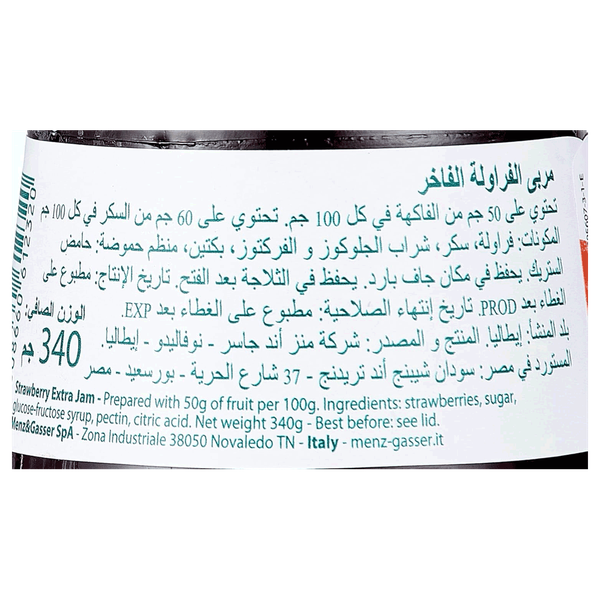 مربى الفراولة الفاخر
تحتوي على 50 جم من الفاكهة في كل 100 جم. تحتوي على 60 جم من السكر في كل 100 جم
المكونات: فراولة، سكر، شراب الجلوكوز و الفركتوز، بكتين، منظم حموضة: حامض
الستريك. يحفظ في مكان جاف بارد. يحفظ في الثلاجة بعد الفتح. تاريخ الإنتاج: مطبوع على
الغطاء بعد PROD. تاريخ إنتهاء الصلاحية: مطبوع على الغطاء بعد EXP.
بلد المنشأ: إيطاليا. المنتج و المصدر: شركة منز أند جاسر - نوفاليدو - إيطاليا.
المستورد في مصر: سودان شيبنج أند تريدنج - 37 شارع الحرية - بورسعيد - مصر
الوزن الصافي:
340 جم
Strawberry Extra Jam - Prepared with 50g of fruit per 100g. Ingredients: strawberries, sugar,
glucose-fructose syrup, pectin, citric acid. Net weight 340g - Best before: see lid.
Menz&Gasser SpA - Zona Industriale 38050 Novaledo TN - Italy - menz-gasser.it